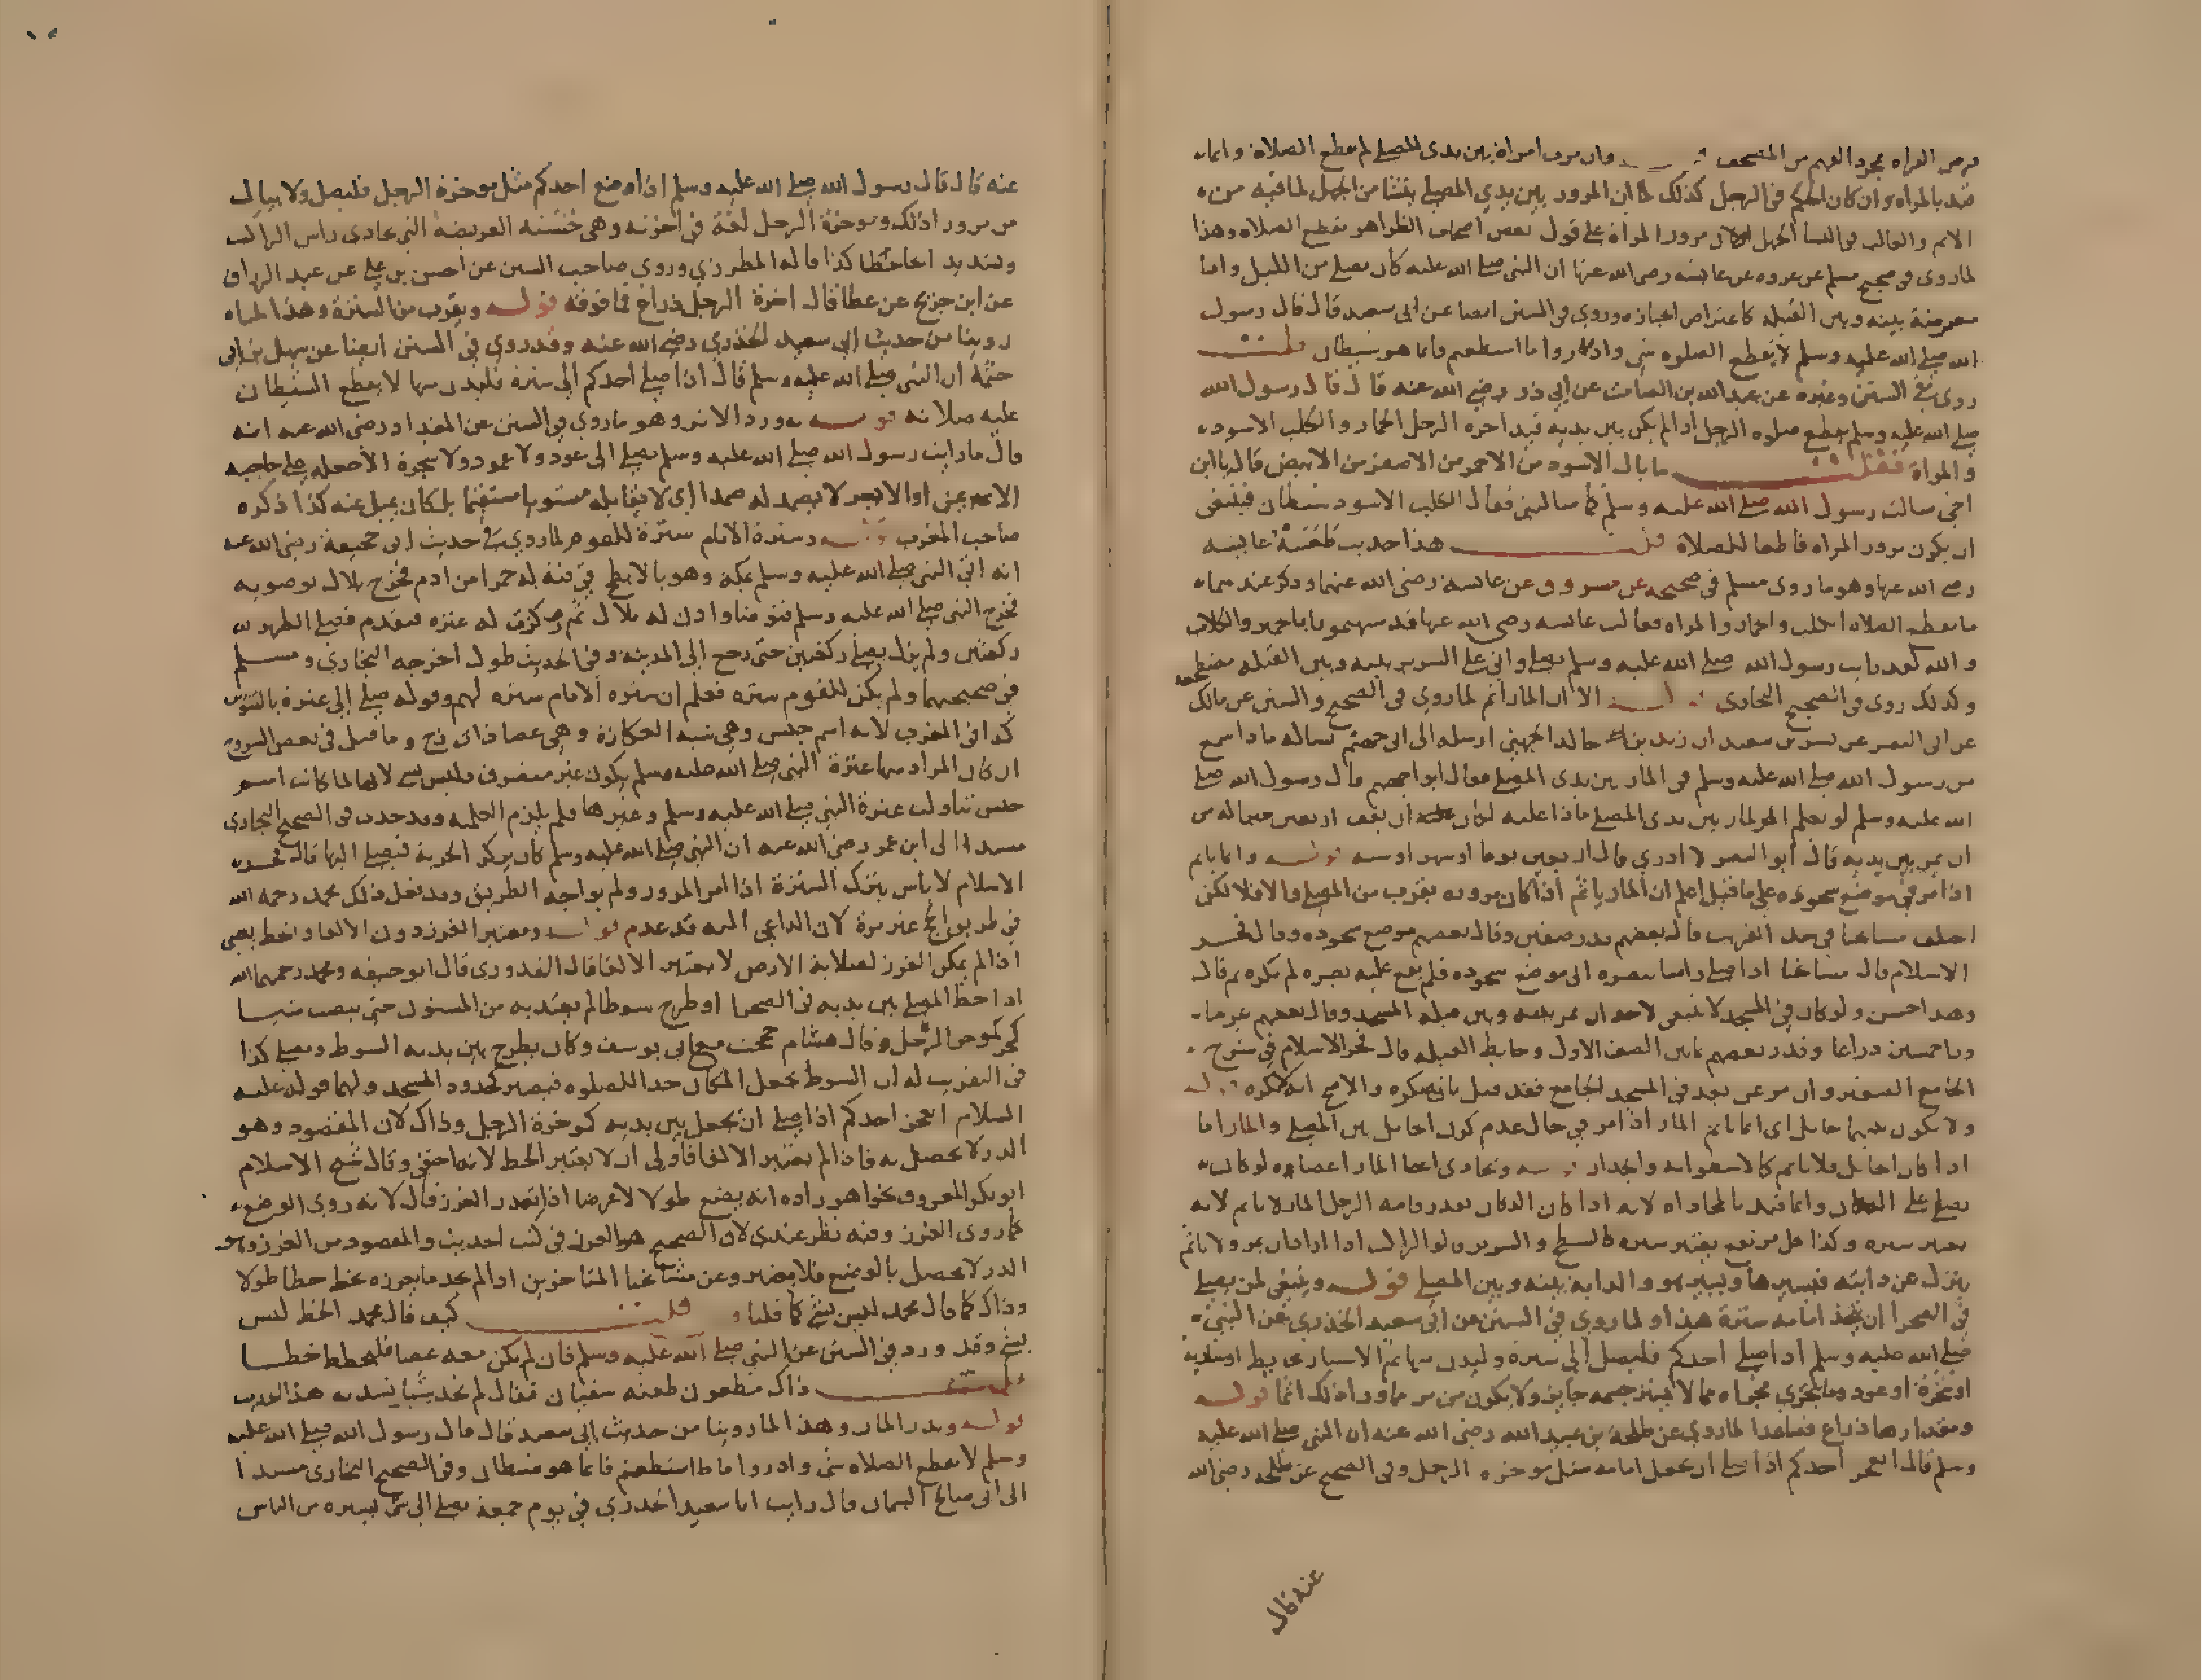 فرض القراه مجرد الفهم من المصحف قوله وان مرت امراة بين يدى المصلي لم يقطع الصلاة وانما
قيد بالمراه وان كان الحكم في الرجل كذلك لما ان المرور بين يدي المصلي ينشا من الجهل لما فيه من
الاثم والغالب في النسا الجهل لان مرور المراة على قول بعض اصحاب الظواهر يقطع الصلاه وهذا
لما روى في صحيح مسلم عن عروه عن عايشه رضى الله عنها ان النبي صلى الله عليه كان يصلي من الليل وانا
معرضة بينه وبين القبله كاعتراض الجنازه وروي في السنن ايضا عن ابى سعيد قال قال رسول
الله صلى الله عليه وسلم لا يقطع الصلوه شي وادروا ما استطعتم فانما هو شيطان فان قلت
روى في السنن وغيره عن عبد الله بن الصامت عن ابي ذر رضي الله عنه قال قال رسول الله
صلى الله عليه وسلم يقطع صلوه الرجل اذا لم يكن بين يديه قيد اخره الرحل الحمار والكلب الاسود
والمراة فقلت ما بال الاسود من الاحمر من الاصفر من الابيض قال يا ابن
اخي سالت رسول الله صلى الله عليه وسلم كما سالتني فقال الكلب الاسود شيطان فينبغى
ان يكون مرور المراه قاطعا للصلاة قلت هذا حديث طعنت عايشه
رضي الله عنها وهو ما روى مسلم في صحيحه عن مسروق عن عايشه رضى الله عنها وذكر عندها
ما يقطع الصلاه الكلب والحمار والمراه فقالت عايشه رضى الله عنها قد شبهتمونا بالحمير والكلاب
والله لقد رايت رسول الله صلى الله عليه وسلم يصلي واني على السرير بينه وبين القبله مضطجعه
وكذلك روى في الصحيح البخارى قوله الا ان المار اثم لما روي في الصحيح والسنن عن مالك
عن ابى النضر عن بسر بن سعيد ان زيد بن خالد الجهني ارسله الى ابى جهيم يساله ماذا سمع
من رسول الله صلى الله عليه وسلم فى المار بين يدى المصلي فقال ابو جهيم قال رسول الله صلى
الله عليه وسلم لو يعلم المار بين يدى المصلي ماذا عليه لكان ان يقف اربعين خيرا له من
ان يمر بين يديه قال ابو النضر لا ادري قال اربعين يوما او شهرا او سنه قوله وانما ياثم
اذا مر في موضع سجوده على ما قيل اعلم ان المار ياثم اذا كان مروره بقرب من المصلي والا فلا لكن
اختلف مشايخنا في حد القرب قال بعضهم بقدر صفين وقال بعضهم موضع سجوده وقال فخر
الاسلام قال مشايخنا اذا صلى راميا ببصره الى موضع سجوده فلم يقع عليه بصره لم يكره ثم قال
وهذا حسن ولو كان في المسجد لا ينبغى لاحد ان يمر بينه وبين قبلة المسجد وقال بعضهم يمر ما
ورا خمسين ذراعا وقدر بعضهم ما بين الصف الاول وحايط القبله قال فخر الاسلام في شرح
الجامع الصغير وان مر عن بعد في المسجد الجامع فقد قيل بانه يكره والاصح انه لا يكره قوله
ولا يكون بينهما حايل اى انما ياثم المار اذا مر في حال عدم كون الحايل بين المصلي والمار اما
اذا كان الحايل فلا ياثم كالاسطوانه والجدار قوله وتحاذى اعضا المار اعضاوه لو كان
يصلي على الدكان وانما قيد بالمحاذاه لانه اذا كان الدكان بقدر قامة الرجل المار لا ياثم لانه
يصير ستره وكذا كل مرتفع يعتبر ستره كالسطح والسرير ولو الراكب اذا اراد ان يمر ولا ياثم
ينزل عن دابته فيسيرها ويسير هو والدابه بينه وبين المصلي قوله وينبغى لمن يصلي
في الصحرا ان يتخذ امامه سترة هذا لما روي في السنن عن ابي سعيد الخدري عن النبي
صلى الله عليه وسلم اذا صلى احدكم فليصل الى ستره وليدن منها ثم الاستتار بحايط او سارية
او شجرة او عود وما يجري مجراه مما لا يتميز جسمه جايز ولا يكون من مر ما ورا ذلك اثما قوله
ومقدارها ذراع فصاعدا لما روي عن طلحة بن عبيد الله رضى الله عنه ان النبي صلى الله عليه
وسلم قال ايعجز احدكم اذا صلى ان يجعل امامه مثل موخره الرحل وفى الصحيح عن طلحه رضى الله
عنه قال
عنه قال قال رسول الله صلى الله عليه وسلم اذا وضع احدكم مثل موخرة الرحل فليصل ولا يبالى
من مر ورا ذلك وموخرة الرحل لغة في اخرته وهي خشبته العريضة التي تحاذى راس الراكب
وتشديد الخا خطا كذا قاله المطرزي وروي صاحب السنن عن الحسن بن علي عن عبد الرزاق
عن ابن جريج عن عطا قال اخرة الرحل ذراع فما فوقه قوله ويقرب من السترة وهذا لما
روينا من حديث ابي سعيد الخدري رضي الله عنه وقد روي في السنن ايضا عن سهل بن ابي
حثمة ان النبي صلى الله عليه وسلم قال اذا صلى احدكم الى سترة فليدن منها لا يقطع الشيطان
عليه صلاته قوله به ورد الاثر وهو ما روي في السنن عن المقداد رضى الله عنه انه
قال ما رايت رسول الله صلى الله عليه وسلم يصلي الى عود ولا عمود ولا شجرة الا جعله على حاجبه
الايمن او الايسر لا يصمد له صمدا اى لا يقابله مستويا مستقيما بل كان يميل عنه كذا ذكره
صاحب المغرب قوله وسترة الامام سترة للقوم لما روي في حديث ابى جحيفة رضى الله عنه
انه اتى النبي صلى الله عليه وسلم بمكة وهو بالابطح في قبة له حمرا من ادم فخرج بلال بوضويه
فخرج النبي صلى الله عليه وسلم فتوضا واذن له بلال ثم ركزت له عنزه فتقدم فصلى الظهر
ركعتين ولم يزل يصلي ركعتين حتى رجع الى المدينه وفي الحديث طول اخرجه البخارى ومسلم
في صحيحيهما ولم يكن للقوم ستره فعلم ان ستره الامام ستره لهم وقوله صلى الى عنزة بالتنوين
كذا في المغرب لانه اسم جنس وهي شبه العكازة وهي عصا ذات زج وما قيل فى بعض الشروح
ان كان المراد بها عنزة النبي صلى الله عليه وسلم يكون غير منصرف فليس بشي لانها لما كانت اسم
جنس تناولت عنزة النبي صلى الله عليه وسلم وغيرها فلم يلزم العلمية وقد حدث فى الصحيح البخارى
مسندا الى ابن عمر رضى الله عنه ان النبي صلى الله عليه وسلم كان يركز الحربة فيصلي اليها قال فخر
الاسلام لا باس بترك السترة اذا امن المرور ولم يواجه الطريق وقد فعل ذلك محمد رحمه الله
في طريق الحج غير مرة لان الداعي اليه قد عدم قوله ويعتبر الغرز دون الالقا والخط يعني
اذا لم يمكن الغرز لصلابة الارض لا يعتبر الالقا قال القدورى قال ابو حنيفه ومحمد رحمهما الله
اذا خط المصلي بين يديه في الصحرا او طرح سوطا لم يعتد به من المسنون حتى ينصب شيا
كموخر الرحل وقال هشام حججت مع ابى يوسف وكان يطرح بين يديه السوط ويصلي كذا
فى التقريب له ان السوط يجعل المكان حدا للصلوه فيصير كحدود المسجد ولهما قوله عليه
السلام ايعجز احدكم اذا صلى ان يجعل بين يديه كموخرة الرحل وذاك لان المقصود وهو
الدر لا يحصل به فاذا لم يعتبر الالقا فاولى ان لا يعتبر الخط لانه اخفى وقال شيخ الاسلام
ابو بكر المعروف بخواهر زاده انه يضع طولا لا عرضا اذا تعذر الغرز قال لانه روى الوضع
كما روى الغرز وفيه نظر عندى لان الصحيح هو الغرز في كتب الحديث والمقصود من الغرز وهو
الدر لا يحصل بالوضع فلا يعتبر وعن مشايخنا المتاخرين اذا لم يجد ما يغرزه يخط خطا طولا
وذاك كما قال محمد ليس بشي كما قلنا قلت كيف قال محمد الخط ليس
بشي وقد ورد في السنن عن النبي صلى الله عليه وسلم فان لم يكن معه عصا فليخطط خطا
قلت ذاك مطعون طعنه سفيان فقال لم نجد شيا نشد به هذا الحديث
قوله ويدرا المار وهذا لما روينا من حديث ابي سعيد قال قال رسول الله صلى الله عليه
وسلم لا يقطع الصلاه شي وادروا ما استطعتم فانما هو شيطان وفى الصحيح البخارى مسندا
الى ابى صالح السمان قال رايت ابا سعيد الخدرى في يوم جمعة يصلي الى شي يستره من الناس